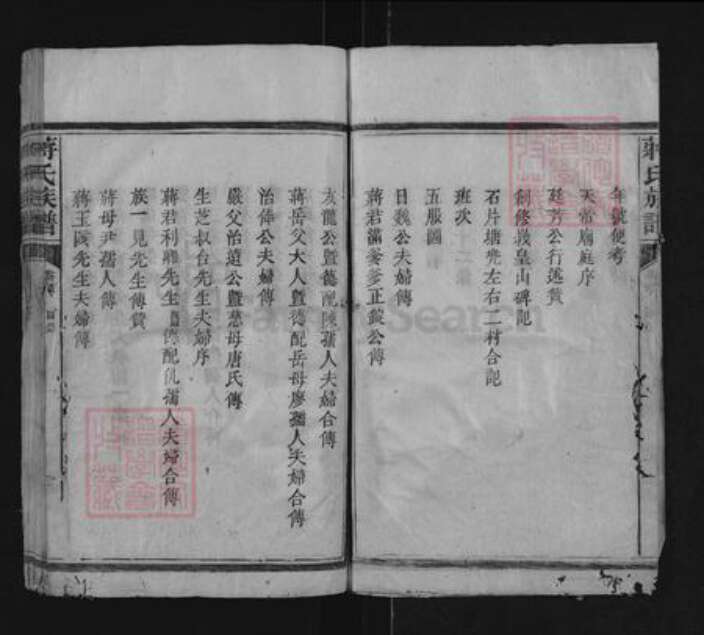 蔣氏族譜
年號便考
天常廟庭序
廷芳公行述贊
創修義皇山碑記
石片塘兜左右二村合記
班次
五服圖
日魏公夫婦傳
蔣君滿爹爹正鏡公傳
友儀公暨德配陳孺人夫婦合傳
蔣岳父大人暨德配岳母廖孺人夫婦合傳
治偉公夫婦傳
嚴父治道公暨慈母唐氏傳
生芝叔台先生夫婦序
蔣君利雍先生德配孺人夫婦合傳
族一見先生傳贊
蔣母尹孺人傳
蔣玉先生夫婦傳
蔣氏族譜
Search